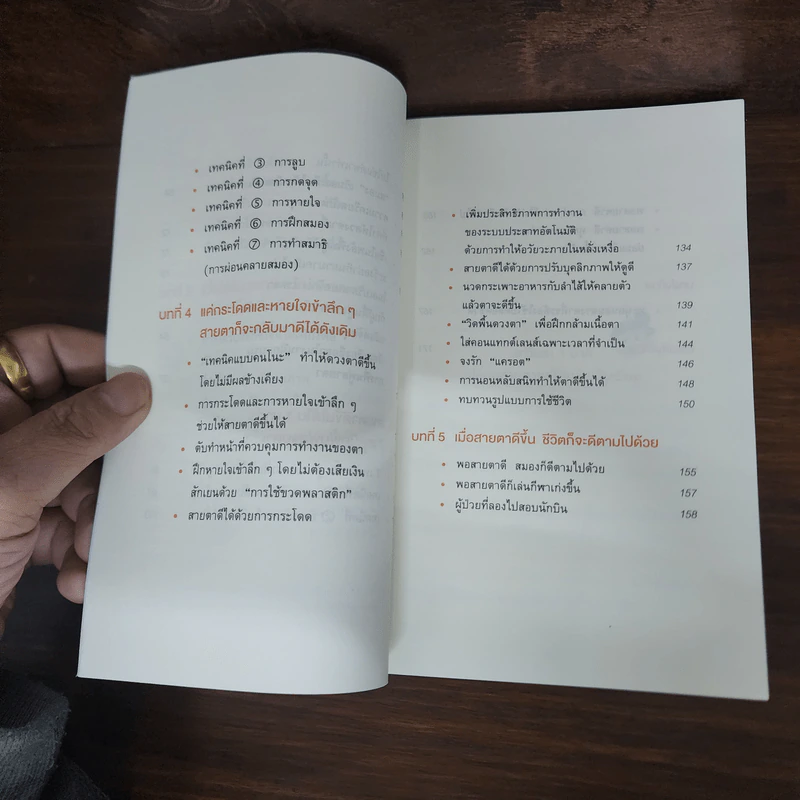 เทคนิคที่ ③ การลูบ
เทคนิคที่ ④ การกดจุด
เทคนิคที่ ⑤ การหายใจ
เทคนิคที่ ⑥ การฝึกสมอง
เทคนิคที่ ⑦ การทำสมาธิ
(การผ่อนคลายสมอง)
บทที่ 4 แค่กระโดดและหายใจเข้าลึก ๆ
สายตาก็จะกลับมาดีได้ดังเดิม
• "เทคนิคแบบคนโนะ" ทำให้ดวงตาดีขึ้น
โดยไม่มีผลข้างเคียง
• การกระโดดและการหายใจเข้าลึก ๆ
ช่วยให้สายตาดีขึ้นได้
• ตับทำหน้าที่ควบคุมการทำงานของตา
• ฝึกหายใจเข้าลึก ๆ โดยไม่ต้องเสียเงิน
สักเยนด้วย "การใช้ขวดพลาสติก"
• สายตาดีได้ด้วยการกระโดด
• เพิ่มประสิทธิภาพการทำงาน
ของระบบประสาทอัตโนมัติ
ด้วยการทำให้อวัยวะภายในหลั่งเหงื่อ 134
• สายตาดีได้ด้วยการปรับบุคลิกภาพให้ดูดี 137
• นวดกระเพาะอาหารกับลำไส้ให้คลายตัว
แล้วตาจะดีขึ้น 139
• "วิดพื้นดวงตา" เพื่อฝึกกล้ามเนื้อตา 141
• ใส่คอนแทกต์เลนส์เฉพาะเวลาที่จำเป็น 144
• จงรัก "แครอต" 146
• การนอนหลับสนิททำให้ตาดีขึ้นได้ 148
• ทบทวนรูปแบบการใช้ชีวิต 150
บทที่ 5 เมื่อสายตาดีขึ้น ชีวิตก็จะดีตามไปด้วย
• พอสายตาดี สมองก็ดีตามไปด้วย 155
• พอสายตาดีก็เล่นกีฬาเก่งขึ้น 157
• ผู้ป่วยที่ลองไปสอบนักบิน 158